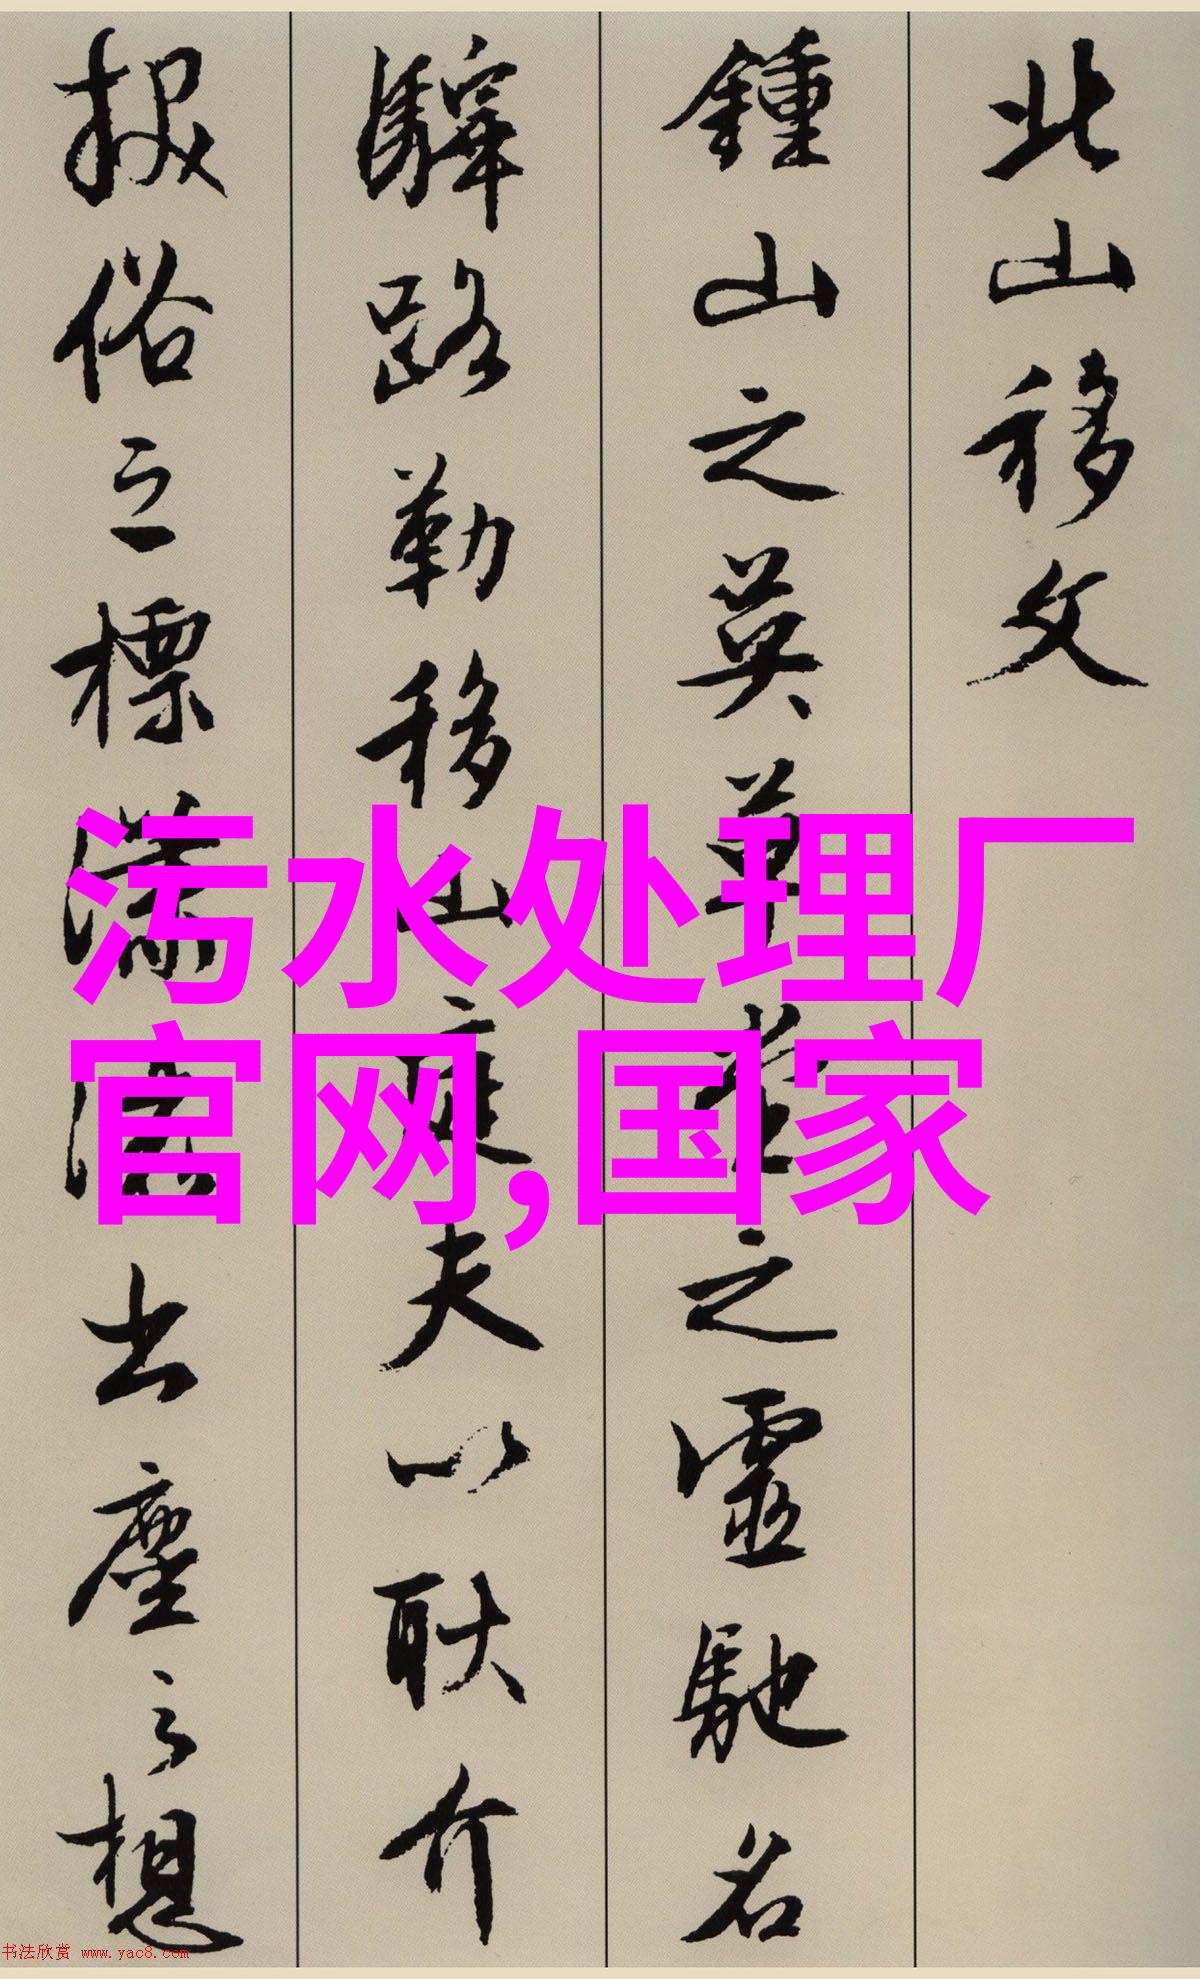 北山移文
鍾山之英草堂之靈馳名
驛路勒移山庭夫以耿介
拔俗之標瀟灑出塵之想
污水处理厂
官网,国家
书法欣赏 www.yac8.com